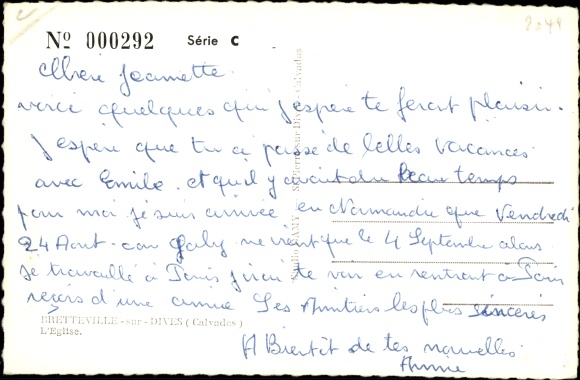 Nº 000292 Série C
2049
Chère Jeannette.
voici quelques qui j'espère te ferait plaisir.
J espère que tu a passé de belles vacances
avec Emile. et qu'il y avait du beau temps
pour moi je suis arrivée en Normandie que Vendredi
24 Aout. car Gaby ne vient que le 4 Septembre alors
je travaille à Paris j'irai te voir en rentrant à Paris
reçois d'une amie Ses Amitiers les plus sincères
BRETTEVILLE-sur-DIVES (Calvados)
L'Eglise.
A Bientit de tes nouvelles
Anne
St-Pierre-sur-Dives - Calvados